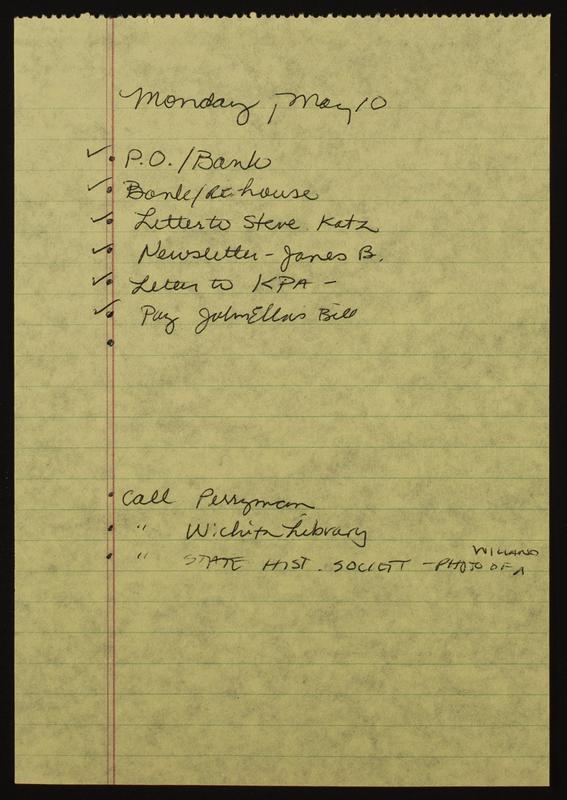 Monday, May 10
✓ • P.O./Bank
✓ • Bank/at house
✓ • Letter to Steve Katz
✓ • Newsletter - James B.
✓ • Letter to KPA -
✓ • Pay John Ellas Bill
•
• Call Perryman
• " Wichita Library
• " STATE HIST. SOCIETY - PHOTO OF A WILLARD